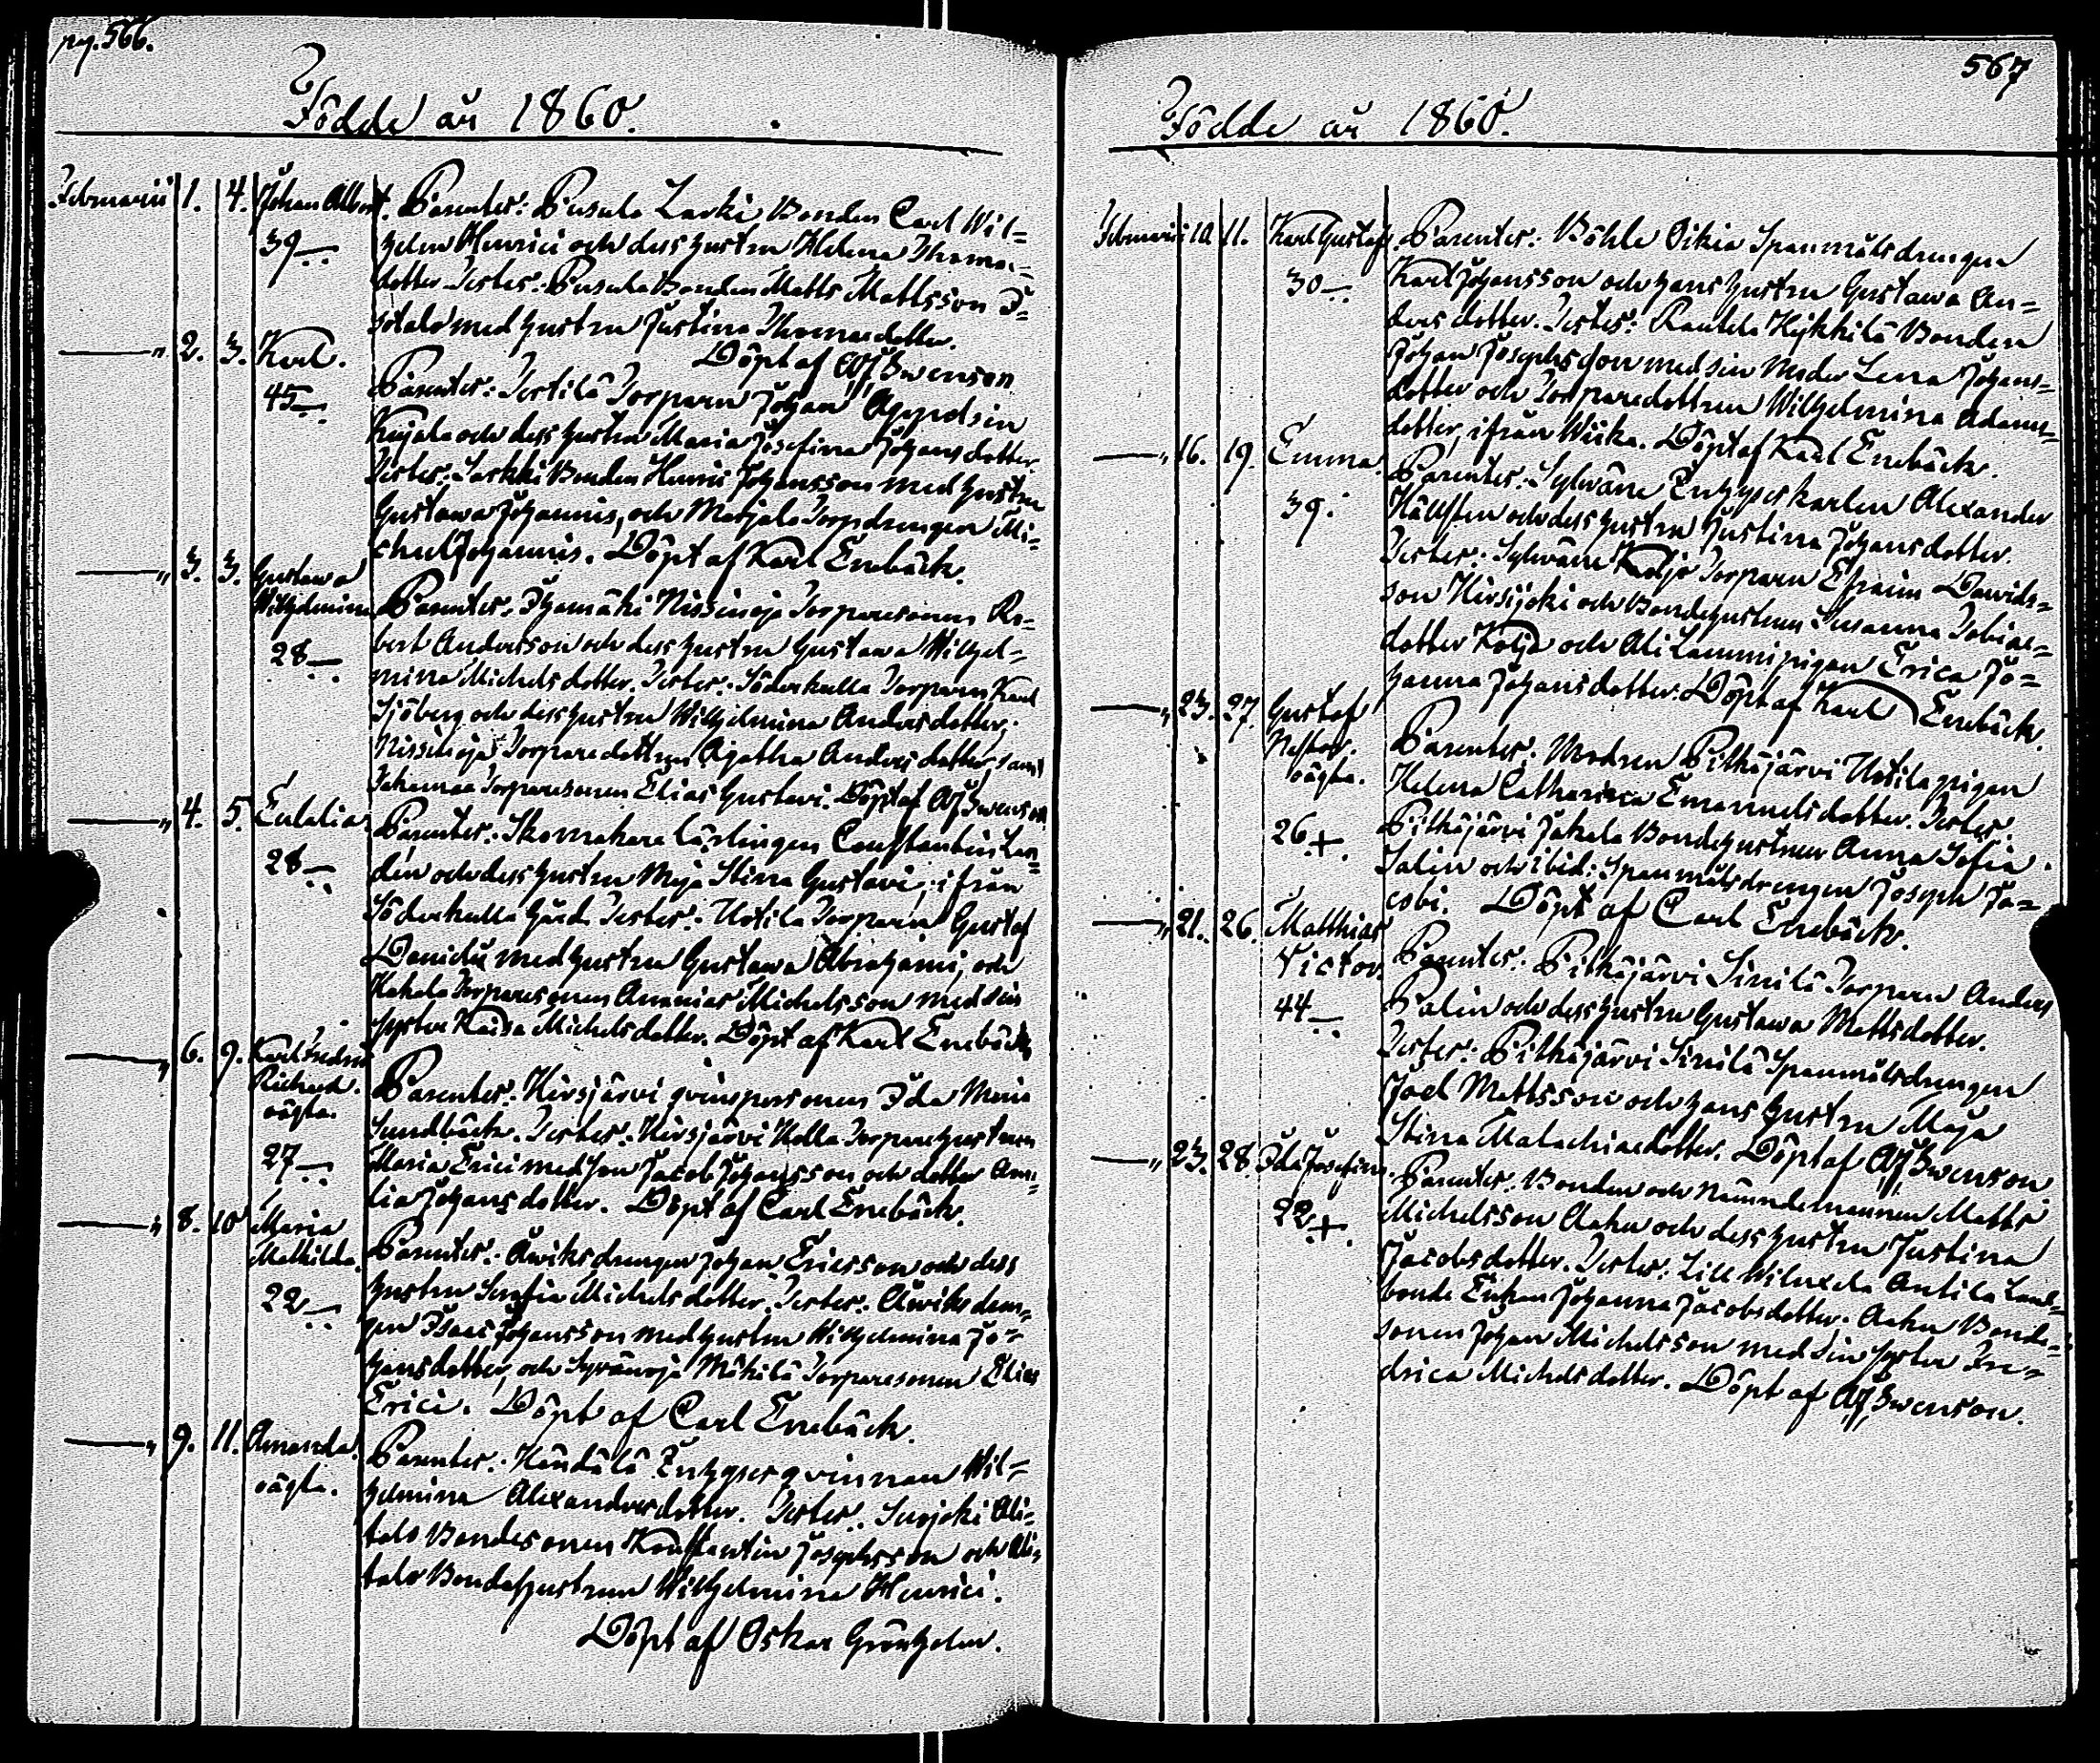 pag. 566.
Födde år 1860.
Februarii 1. 4. Johan Albert. Parenter: Pusula Larki Bonden Carl Wil=
39 — helm Henrici och dess hustru Helena Thomas=
dotter Testes: Pusula Bonden Matts Mattsson I=
sotalo med hustru Justina Thomasdotter.
Döpt af AJ Swenson
— " 2. 3. Karl. Parenter: Tertilä Torparn Johan Appolsin
45 — Kujala och dess hustru Maria Josefina Johansdotter
Testes: Larkki Bonden Henric Johansson med hustru
Gustawa Johannis, och Marjala Torpdrengen Mi=
chel Johannis. Döpt af Karl Enebäck.
— " 3. 3. Gustawa
Wilhelmina Parenter. Ihamäki Nissinoja Torparesonen Ro=
28 — bert Andersson och dess hustru Gustawa Wilhel=
mina Michelsdotter. Testes: Söderkulla Torparen Karl
Sjöberg och dess hustru Wilhelmina Andersdotter,
Nissinoja Torparedottren Agatha Andersdotter, samt
Torparesonen Elias Gustavi. Döpt af AJ Swenson
— " 4. 5. Eulalia. Parenter: Skomakare lärlingen Constantin Lan=
28 — dén och dess hustru Maja Stina Gustavi, ifrån
Söderkulla Gård. Testes: Uotila Torparn Gustaf
Davidis med hustru Gustawa Abrahami, och
Kakola Torparesonen Ananias Michelsson med sin
syster Kaisa Michelsdotter. Döpt af Karl Enebäck
— " 6. 9. Karl Fredric
Richard. Parenter: Hirsjärvi qvinspersonen Ida Maria
oägta. Sundbäck. Testes: Hirsjärvi Holla Torparehustrun
27 — Maria Erici med son Jacob Johansson och dotter Ama=
lia Johansdotter. Döpt af Carl Enebäck.
— " 8. 10 Maria
Mathilda. Parenter: Åwiks drengen Johan Ericsson och dess
22 — hustru Serafia Michelsdotter. Testes: Åwiks dren=
gen Isaac Johansson med hustru Wilhelmina Jo=
hansdotter, och Syvänoja Mäkilä Torparesonen Elias
Erici. Döpt af Carl Enebäck.
— " 9. 11. Amanda. Parenter: Händälä Inhysesqvinnan Wil=
oägta. helmina Alexandersdotter. Testes: Suojoki Ali=
talo Bondesonen Konstantin Josephsson och Ali=
talo Bondehustrun Wilhelmina Henrici.
Döpt af Oskar Grönholm.
567
Födde år 1860.
Februarii 10. 11. Karl Gustaf. Parenter: Böhle Oikia Spanmålsdrengen
30 — Karl Johansson och hans hustru Gustawa An=
dersdotter. Testes: Rautela Heikkilä Bonden
Johan Josephsson med sin Moder Lena Johans=
dotter och Torparedottren Wilhelmina Adams=
dotter, ifrån Wiika. Döpt af Karl Enebäck.
— " 16. 19. Emma. Parenter: Sylwäne Inhyseskarlen Alexander
39. Hällsten och dess hustru Justina Johansdotter.
Testes: Sylwäne Kolja Torparn Efraim Davids=
son Hirsijoki och Bondehustrun Susanna Tobias=
dotter Kolja och Ali Lammi pigan Erica Jo=
hanna Johansdotter. Döpt af Karl Enebäck.
— " 23. 27. Gustaf
Nestor. Parenter: Modren Pitkäjärvi Uotila pigan
oägta. Helena Catharina Emanuelsdotter. Testes:
26 + Pitkäjärvi Jakala Bondehustrun Anna Sofia
Salin och ibid: Spanmålsdrengen Joseph Ja=
cobi. Döpt af Carl Enebäck.
— " 21. 26. Matthias
Victor. Parenter: Pitkäjärvi Sinilä Torparen Anders
44 — Palin och dess hustru Gustawa Mattsdotter.
Testes: Pitkäjärvi Sinilä Spanmålsdrengen
Joel Mattsson och hans hustru Maja
Stina Malachiasdotter. Döpt af AJ Swenson
— " 23. 28. Ida Josefina. Parenter: Bonden och Nämndemannen Matts
22 + Michelsson Aahu och dess hustru Justina
Jacobsdotter. Testes: Lill Wiluxela Antila Land=
bonde Enkan Johanna Jacobsdotter. Aahu Bonde=
sonen Johan Michelsson med sin syster Fre=
drica Michelsdotter. Döpt af AJ Swenson.